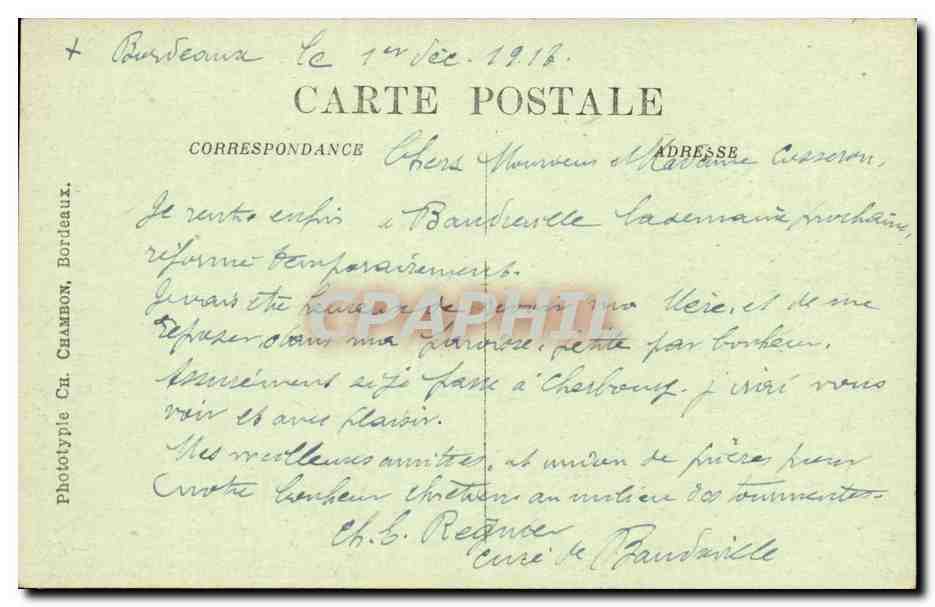 + Bordeaux le 1er déc. 1917.
CARTE POSTALE
CORRESPONDANCE
ADRESSE
Chers Monsieur et Madame Cusseron,
Je rentre enfin à Baudreville la semaine prochaine,
réformé temporairement.
Je vais être heureux de revoir ma Mère, et de me
reposer, dans ma paroisse, petite par bonheur.
Assurément si je passe à Cherbourg j'irai vous
voir et avec plaisir.
Mes meilleures amitiés, et union de prières pour
notre bonheur chrétien au milieu des tourmentes.
Ch. L. Regnier
curé de Baudreville
Phototypie CH. CHAMBON, Bordeaux.
CPAPHIL